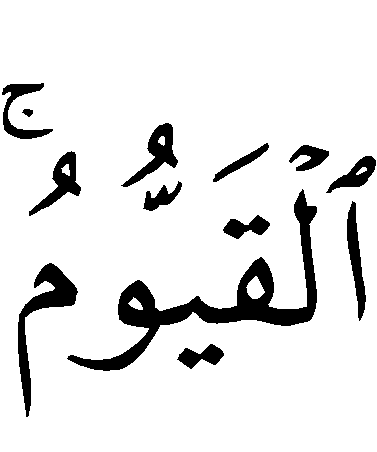 ٱلْقَيُّومُ ۚ